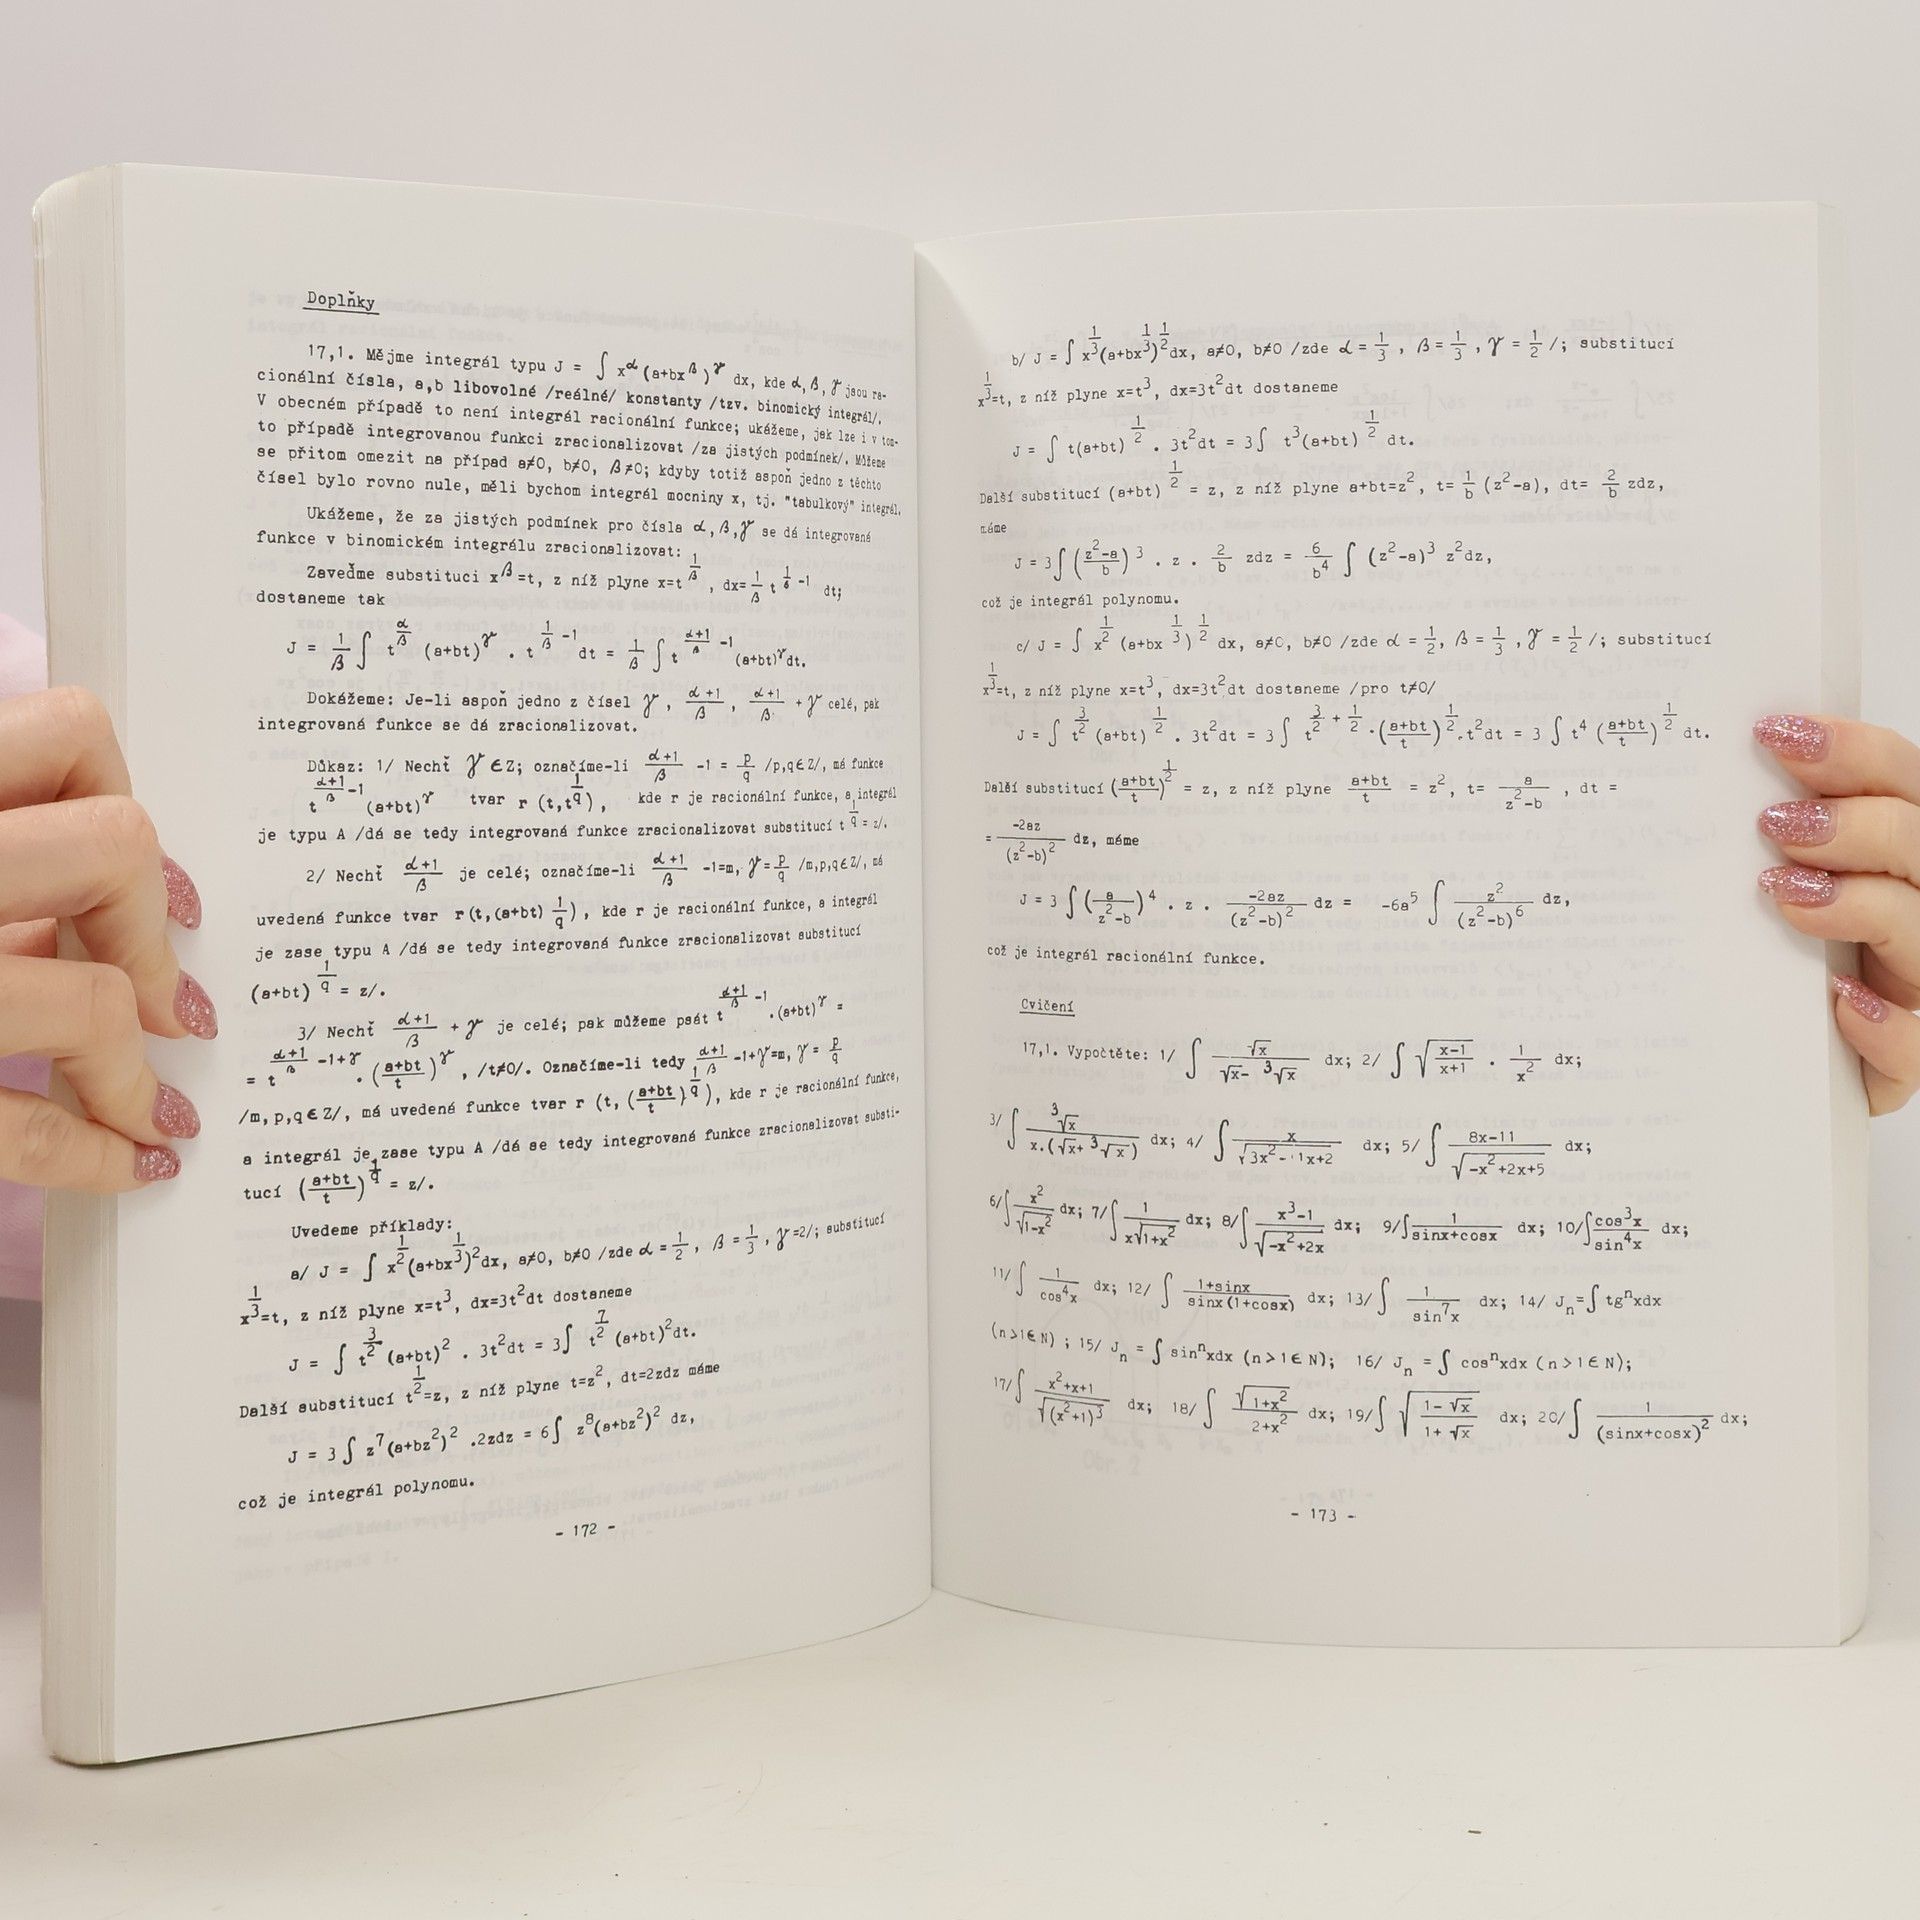 Doplňky
17,1. Mějme integrál typu J = ∫ x^α (a+bx^β)^γ dx, kde α, β, γ jsou ra-
cionální čísla, a,b libovolné /reálné/ konstanty /tzv. binomický integrál/.
V obecném případě to není integrál racionální funkce; ukážeme, jak lze i v tom-
to případě integrovanou funkci zracionalizovat /za jistých podmínek/. Můžeme
se přitom omezit na případ a≠0, b≠0, β≠0; kdyby totiž aspoň jedno z těchto
čísel bylo rovno nule, měli bychom integrál mocniny x, tj. "tabulkový" integrál.
Ukážeme, že za jistých podmínek pro čísla α,β,γ se dá integrovaná
funkce v binomickém integrálu zracionalizovat:
Zaveďme substituci x^β=t, z níž plyne x=t^(1/β), dx=1/β t^(1/β -1) dt;
dostaneme tak
J = 1/β ∫ t^(α/β) (a+bt)^γ . t^(1/β -1) dt = 1/β ∫ t^((α+1)/β -1) (a+bt)^γ dt.
Dokážeme: Je-li aspoň jedno z čísel γ, (α+1)/β, (α+1)/β + γ celé, pak
integrovaná funkce se dá zracionalizovat.
Důkaz: 1/ Nechť γ ∈ Z; označíme-li (α+1)/β -1 = p/q /p,q∈Z/, má funkce
t^((α+1)/β -1) (a+bt)^γ tvar r (t,t^(1/q)), kde r je racionální funkce, a integrál
je typu A /dá se tedy integrovaná funkce zracionalizovat substitucí t^(1/q) = z/.
2/ Nechť (α+1)/β je celé; označíme-li (α+1)/β -1=m, γ = p/q /m,p,q∈Z/, má
uvedená funkce tvar r(t,(a+bt)^(1/q)), kde r je racionální funkce, a integrál
je zase typu A /dá se tedy integrovaná funkce zracionalizovat substitucí
(a+bt)^(1/q) = z/.
3/ Nechť (α+1)/β + γ je celé; pak můžeme psát t^((α+1)/β -1) .(a+bt)^γ =
= t^((α+1)/β -1+γ) . ((a+bt)/t)^γ, /t≠0/. Označíme-li tedy (α+1)/β -1+γ=m, γ = p/q
/m,p,q∈Z/, má uvedená funkce tvar r (t, ((a+bt)/t)^(1/q)), kde r je racionální funkce,
a integrál je zase typu A /dá se tedy integrovaná funkce zracionalizovat substi-
tucí ((a+bt)/t)^(1/q) = z/.
Uvedeme příklady:
a/ J = ∫ x^(1/2) (a+bx^(1/3))^2 dx, a≠0, b≠0 /zde α = 1/2, β = 1/3, γ=2/; substitucí
x^(1/3)=t, z níž plyne x=t^3, dx=3t^2dt dostaneme
J = ∫ t^(3/2) (a+bt)^2 . 3t^2dt = 3∫ t^(7/2) (a+bt)^2dt.
Další substitucí t^(1/2)=z, z níž plyne t=z^2, dt=2zdz máme
J = 3 ∫ z^7(a+bz^2)^2 .2zdz = 6∫ z^8(a+bz^2)^2 dz,
což je integrál polynomu.
- 172 -
b/ J = ∫ x^(1/3)(a+bx^(1/3))^(1/2) dx, a≠0, b≠0 /zde α = 1/3, β = 1/3, γ = 1/2 /; substitucí
x^(1/3)=t, z níž plyne x=t^3, dx=3t^2dt dostaneme
J = ∫ t(a+bt)^(1/2) . 3t^2dt = 3∫ t^3(a+bt)^(1/2) dt.
Další substitucí (a+bt)^(1/2) = z, z níž plyne a+bt=z^2, t= 1/b (z^2-a), dt= 2/b zdz,
máme
J = 3∫ ((z^2-a)/b)^3 . z . 2/b zdz = 6/b^4 ∫ (z^2-a)^3 z^2dz,
což je integrál polynomu.
c/ J = ∫ x^(1/2) (a+bx^(1/3))^(1/2) dx, a≠0, b≠0 /zde α = 1/2, β = 1/3, γ = 1/2 /; substitucí
x^(1/3)=t, z níž plyne x=t^3, dx=3t^2dt dostaneme /pro t≠0/
J = ∫ t^(3/2) (a+bt)^(1/2) . 3t^2dt = 3∫ t^(3/2 + 1/2) .((a+bt)/t)^(1/2) .t^2dt = 3 ∫ t^4 ((a+bt)/t)^(1/2) dt.
Další substitucí ((a+bt)/t)^(1/2) = z, z níž plyne (a+bt)/t = z^2, t= a/(z^2-b), dt =
= -2az/(z^2-b)^2 dz, máme
J = 3 ∫ (a/(z^2-b))^4 . z . -2az/(z^2-b)^2 dz = -6a^5 ∫ z^2/(z^2-b)^6 dz,
což je integrál racionální funkce.
Cvičení
17,1. Vypočtěte: 1/ ∫ √x/(√x- ³√x) dx; 2/ ∫ √((x-1)/(x+1)) . 1/x^2 dx;
3/ ∫ ³√x/(x.(√x+ ³√x)) dx; 4/ ∫ x/√(3x^2-11x+2) dx; 5/ ∫ (8x-11)/√(-x^2+2x+5) dx;
6/ ∫ x^2/√(1-x^2) dx; 7/ ∫ 1/(x√(1+x^2)) dx; 8/ ∫ (x^3-1)/√(-x^2+2x) dx; 9/ ∫ 1/(sinx+cosx) dx; 10/ ∫ cos^3x/sin^4x dx;
11/ ∫ 1/cos^4x dx; 12/ ∫ (1+sinx)/(sinx(1+cosx)) dx; 13/ ∫ 1/sin^7x dx; 14/ J_n = ∫ tg^nxdx
(n>1∈N) ; 15/ J_n = ∫ sin^nxdx (n>1∈N); 16/ J_n = ∫ cos^nxdx (n>1∈N);
17/ ∫ (x^2+x+1)/√((x^2+1)^3) dx; 18/ ∫ √(1+x^2)/(2+x^2) dx; 19/ ∫ √((1-√x)/(1+√x)) dx; 20/ ∫ 1/(sinx+cosx)^2 dx;
- 173 -